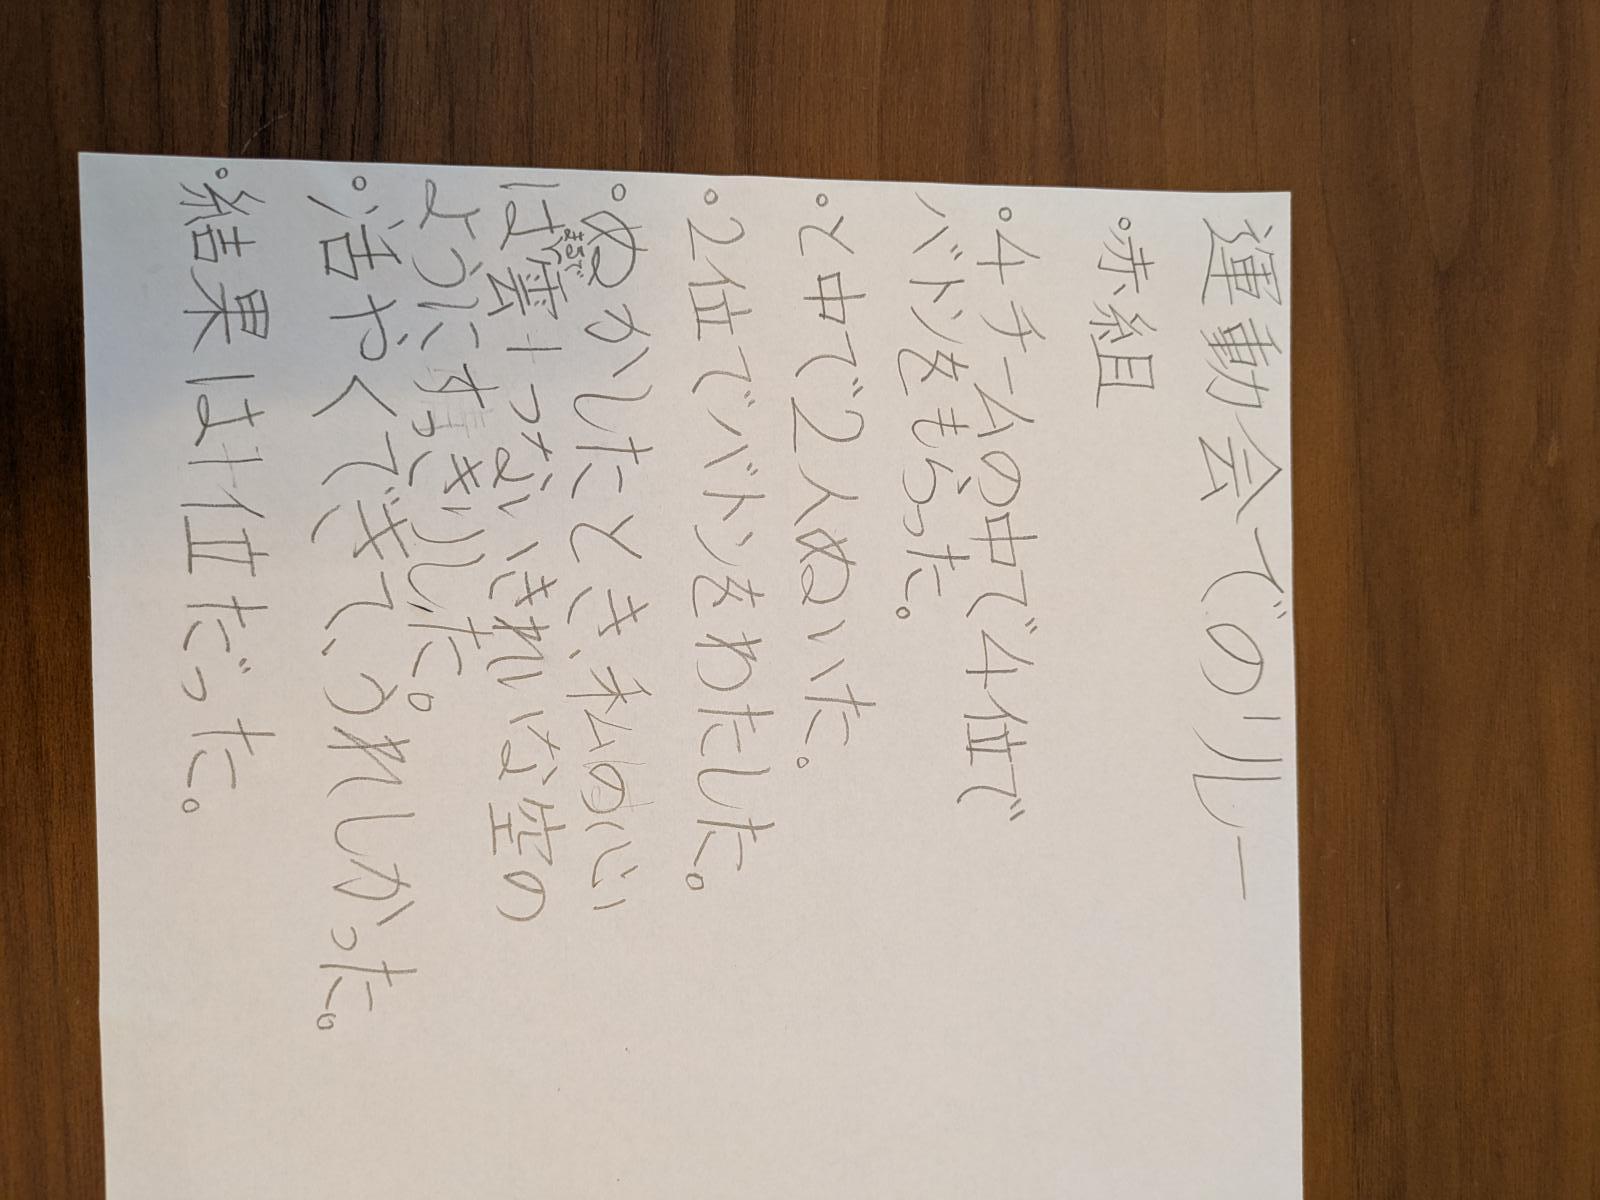 運動会でのリレー
・赤組
・4チームの中で4位で
バトンをもらった。
・と中で2人ぬいた。
・2位でバトンをわたした。
・ぬかしたとき、私の心
はまるで雲1つないきれいな空の
ようにすっきりした。
・活やくできて、うれしかった。
・結果は1位だった。